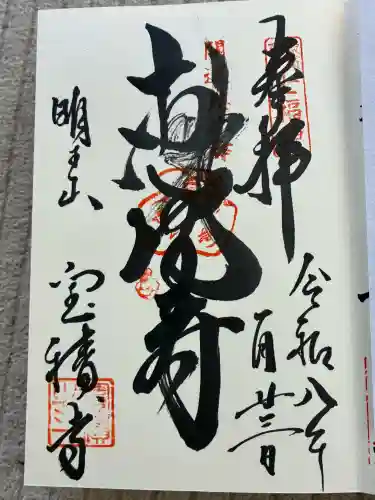 奉拝
令和八年
一月廿三日
福禄寿
明王山
宝積寺